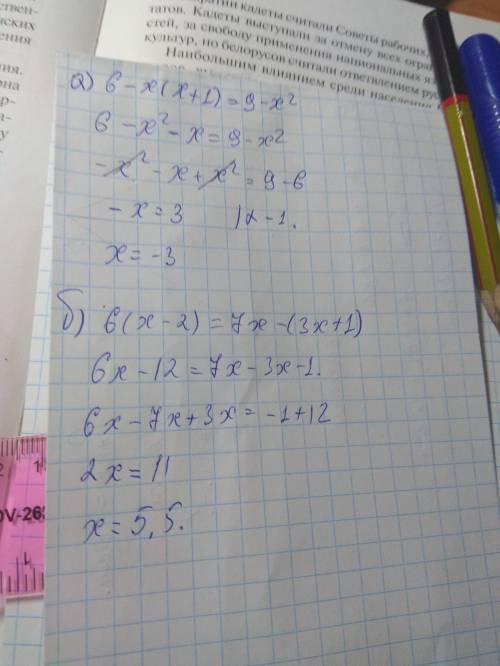 ствен-
нских
ления
ния.
рна
ар-
ка-
ку
о-
кадеты считали Советы рабочих,
татов. Кадеты выступали за отмену всех огра
стей, за свободу применения национальных яз
культур, но белорусов считали ответвлением рус
Наибольшим влиянием среди населения
а) 6 - x(x+1) = 9 - x²
6 - x² - x = 9 - x²
- x² - x + x² = 9 - 6
- x = 3 |x - 1.
x = -3
б) 6(x-2) = 7x - (3x+1)
6x - 12 = 7x - 3x - 1.
6x - 7x + 3x = -1 + 12
2x = 11
x = 5,5.
1